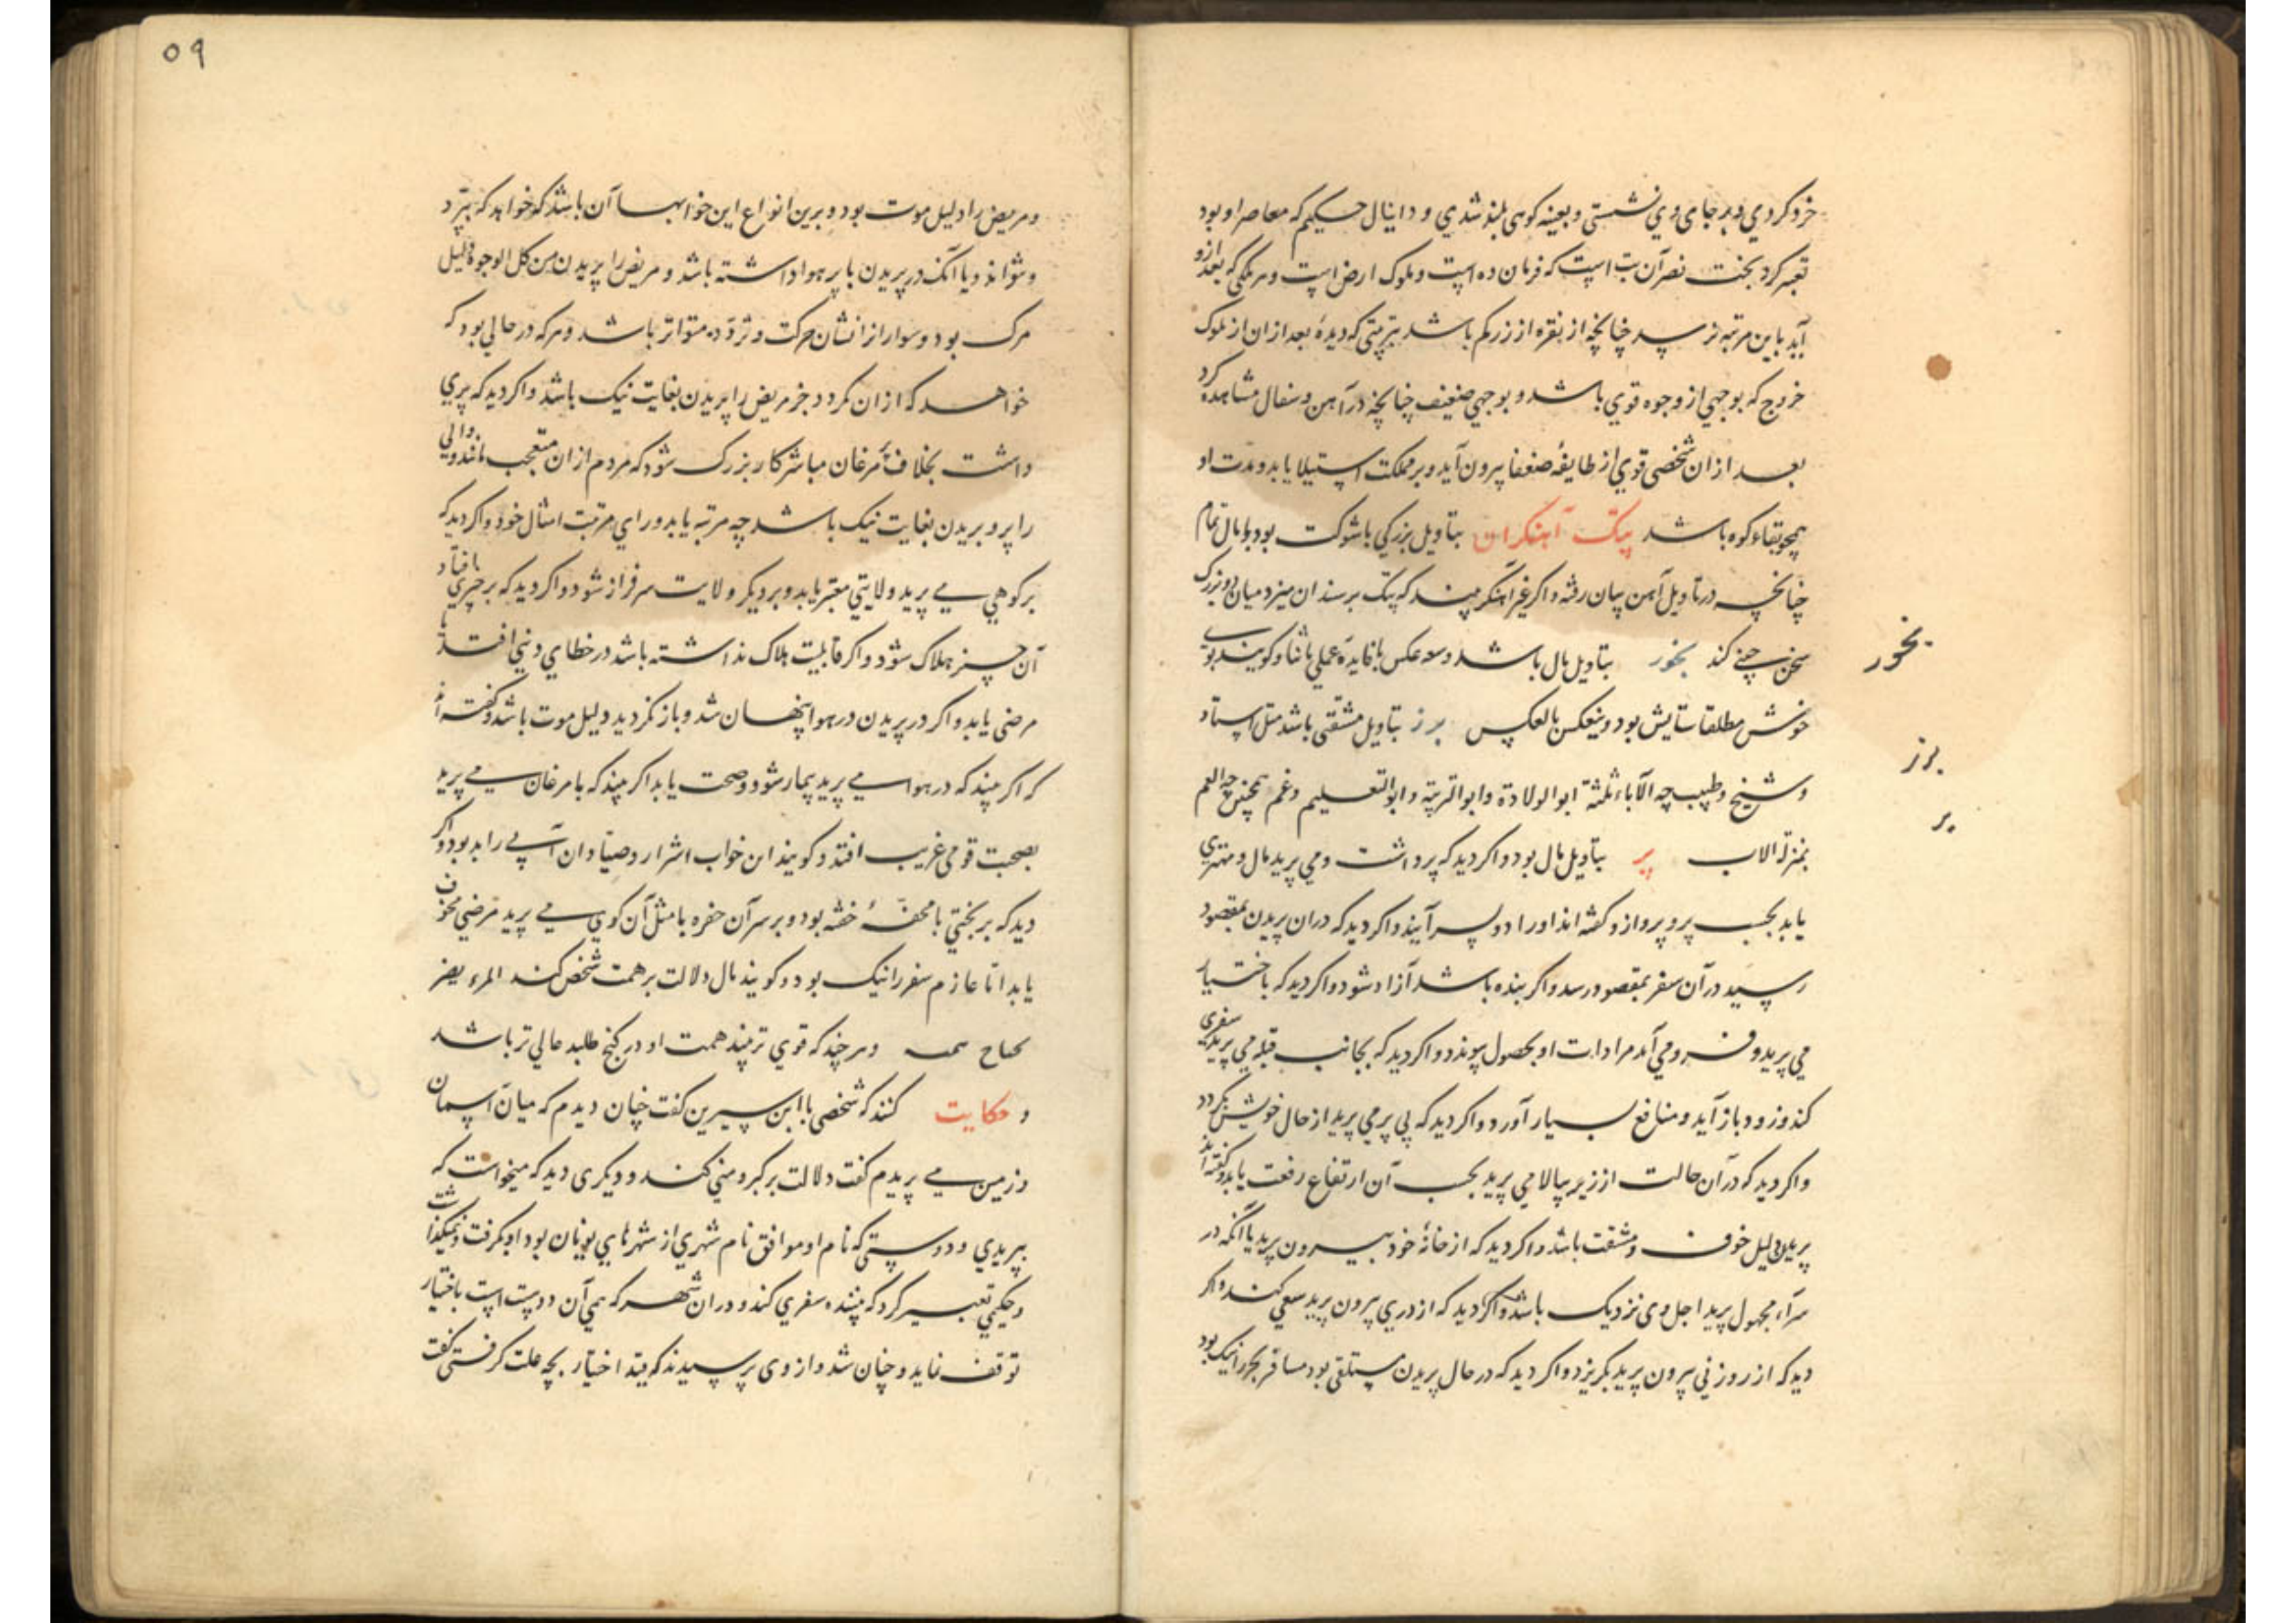 خرد کردی و بر جای وی نشستی و بعینه کوهی بلند شدی و دانیال حکیم که معاصر او بود
تعبیر کرد بخت نصر آن بت است که فرمان ده است و ملوک ارض است و هر ملکی که بعد ازو
آید باین مرتبه نرسد چنانچه از نقره از زر کم باشد بترتیبی که دیدهٔ بعد از آن از ملوک
خروج که بوجهی از وجوه قوی باشد و بوجهی ضعیف چنانچه در آهن و سفال مشاهده کرد
بعد از آن شخصی قوی از طایفهٔ ضعفا بیرون آید و بر مملکت استیلا یابد و مدت او
همچو بقاء کوه باشد پتک آهنکران بتاویل بزرکی باشوکت بود با مال تمام
چنانچه در تاویل آهن بیان رفته و اکر غیر آهنکر بیند که پتک بر سندان میزد میان دو بزرک
سخن چینی کند بخور بتاویل مال باشد و سعه عکس با فایدهٔ عملی با ثنا و کویند بوی
خوش مطلقا ستایش بود و ینعکس بالعکس برز بتاویل مشقی باشد مثل استاد
و شیخ و طبیب چه الآباء ثلثة ابو الولادة و ابو التربیة و ابو التعلیم و عم همچنین چه العم
بمنزلة الاب پر بتاویل مال بود و اکر دید که پر داشت و می پرید مال و مهتری
یابد بحسب پر و پرواز و کفته اند او را دو پسر آیند و اکر دید که در آن پریدن بمقصود
رسید در آن سفر بمقصود رسد و اکر بنده باشد آزاد شود و اکر دید که باختیار
می پرید و فرو می آمد مرادات او بحصول پیوندد و اکر دید که بجانب قبله می پرید سفری
کند و زود باز آید و منافع بسیار آورد و اکر دید که بی پر می پرید از حال خویش بکردد
و اکر دید که در آن حالت از زیر ببالا می پرید بحسب آن ارتفاع رفعت یابد و کفته اند
پریدن دلیل خوف و مشقت باشد و اکر دید که از خانهٔ خود بیرون پرید یا آنکه در
سرای مجهول پرید اجل وی نزدیک باشد و اکر دید که از دری بیرون پرید سعی کند و اکر
دید که از روزنی بیرون پرید بکریزد و اکر دید که در حال پریدن مستلقی بود مسافر بحر را نیک بود
بخور
برز
پر
۵۹
و مریض را دلیل موت بود و برین انواع این خوابها آن باشد که خواهد که بپرد
و نتواند و یا آنک در پریدن با پر هوا داشته باشد و مریض را پریدن من کل الوجوه دلیل
مرک بود و سوار از انشان حرکت و تردد متواتر باشد و هر که در حالی بود که
خواهد که از آن بکردد جز مریض را پریدن بغایت نیک باشد و اکر دید که پری
داشت بخلاف پر مرغان مباشر کار بزرک شود که مردم از آن متعجب مانند و والی
را پر و پریدن بغایت نیک باشد چه مرتبه یابد ورای مرتبت امثال خود و اکر دید که
بر کوهی می پرید ولایتی معتبر یابد و بر دیکر ولایت سرفراز شود و اکر دید که بر چیزی بافتاد
آن چیز هلاک شود و اکر قابلیت هلاک نداشته باشد در خطای دینی افتد یا
مرضی یابد و اکر در پریدن در هوا پنهان شد و باز نکردید دلیل موت باشد و کفته اند
که اکر بیند که در هوا می پرید بیمار شود و صحت یابد اکر بیند که با مرغان می پرید
بصحبت قومی غریب افتد و کویند این خواب اشرار و صیادان آبی را بد بود و اکر
دید که بر تختی یا محفهٔ خفته بود و بر سر آن حفره یا مثل آن کوی می پرید مرضی مخوف
یابد اما عازم سفر را نیک بود و کویند مال دلالت بر همت شخص کند المرء یطیر
بجناح همته و هر چند که قوی تر بیند همت او در کنج طلبد عالی تر باشد
و حکایت کنند که شخصی با ابن سیرین کفت چنان دیدم که میان آسمان
و زمین می پریدم کفت دلالت بر کبر و منی کند و دیکری دید که میخواست که
بپریدی و دوستی که نام او موافق نام شهری از شهرهای یونان بود او بکرفت و نمیکذاشت
و حکیمی تعبیر کرد که بیننده سفری کند و در آن شهر که همی آن دوست است باختیار
توقف نماید و چنان شد و از وی پرسیدند که قید اختیار بچه علت کرفتی کفت